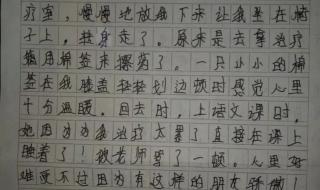 疗室，慢慢地放我下来让我坐在椅
子上，转身走了。原来是去拿治疗
棉签来擦药了。一只小小的棉
签在我膝盖轻轻划边顿时感觉心里
十分温暖。回去时，上语文课时，
她因为为我治疗太累了直接在课上
睡着了！被老师骂了一顿。心里好
难受不过因为有这样的朋友骄傲！